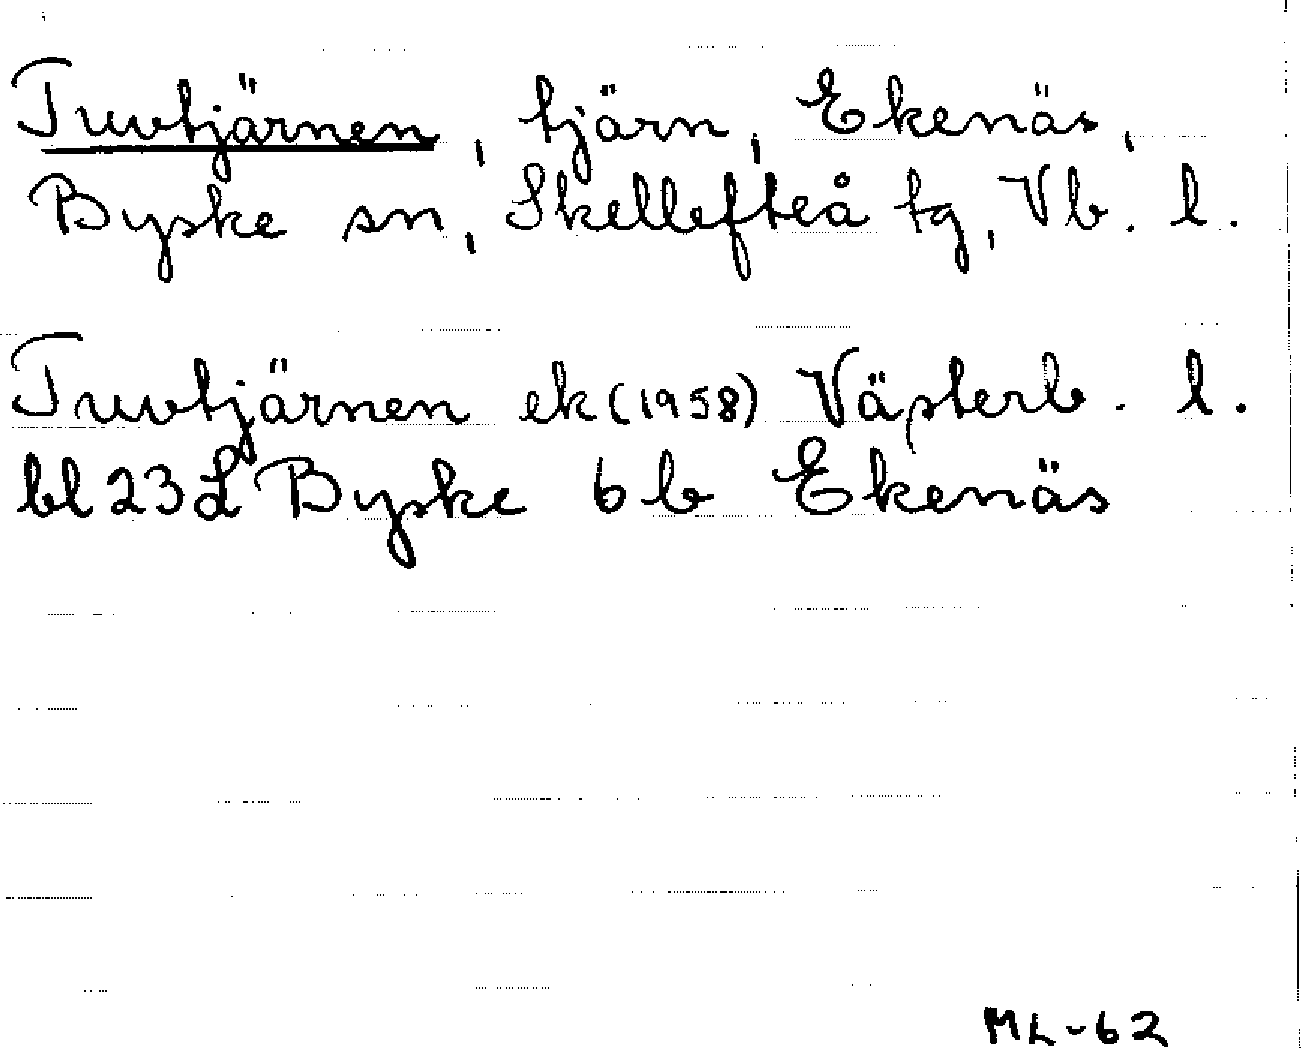 Tuvtjärnen, tjärn, Ekenäs,
Byske sn, Skellefteå tg, Vb. l.
Tuvtjärnen ek (1958) Västerb. l.
bl 23L Byske 6b Ekenäs
ML-62